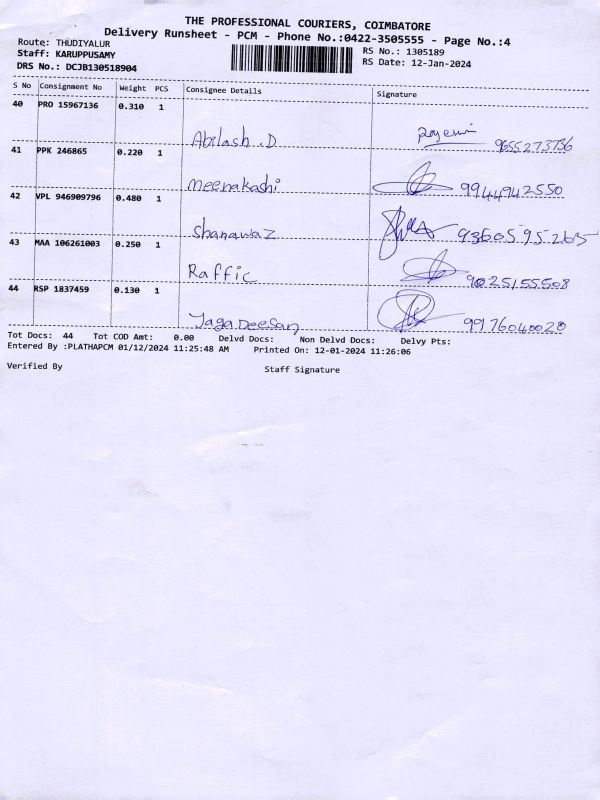 THE PROFESSIONAL COURIERS, COIMBATORE
Delivery Runsheet - PCM - Phone No.:0422-3505555 - Page No.:4
Route: THUDIYALUR
Staff: KARUPPUSAMY
DRS No.: DCJB130518904
RS No.: 1305189
RS Date: 12-Jan-2024
S No Consignment No Weight PCS Consignee Details Signature
40 PRO 15967136 0.310 1
Abilash .D 9655273736
41 PPK 246865 0.220 1
Meenakashi 9944942550
42 VPL 946909796 0.480 1
Shanawaz 9360595265
43 MAA 106261003 0.250 1
Raffic 9025155508
44 RSP 1837459 0.130 1
JagaDeesan 9976040020
Tot Docs: 44 Tot COD Amt: 0.00 Delvd Docs: Non Delvd Docs: Delvy Pts:
Entered By :PLATHAPCM 01/12/2024 11:25:48 AM Printed On: 12-01-2024 11:26:06
Verified By Staff Signature